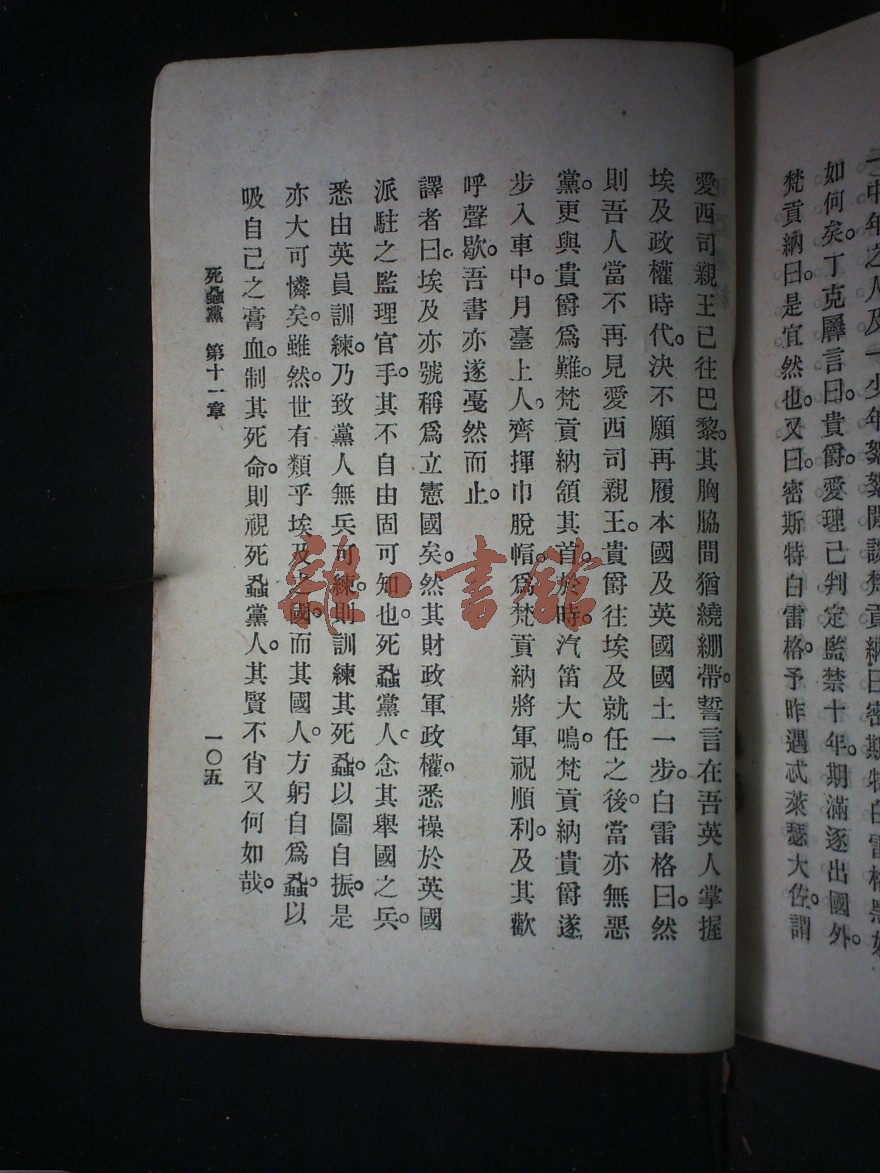 一中年之人及一少年絮絮閒談梵貢納曰密斯特白雷格
如何矣。丁克羼言曰。貴爵。愛理已判定監禁十年。期滿逐出國外。
梵貢納曰。是宜然也。又曰。密斯特白雷格。予昨遇忒萊瑟大佐。謂
愛西司親王已往巴黎。其胸脇間猶繞綳帶。誓言在吾英人掌握
埃及政權時代。決不願再履本國及英國國土一步。白雷格曰。然
則吾人當不再見愛西司親王。貴爵往埃及就任之後。當亦無惡
黨。更與貴爵爲難。梵貢納頷其首。於時。汽笛大鳴。梵貢納貴爵遂
步入車中。月臺上人。齊揮巾脫帽。爲梵貢納將軍祝順利。及其歡
呼聲歇。吾書亦遂戞然而止。
譯者曰。埃及亦號稱爲立憲國矣。然其財政軍政權。悉操於英國
派駐之監理官手。其不自由固可知也。死蝨黨人。念其舉國之兵。
悉由英員訓練。乃致黨人無兵可練。則訓練其死蝨。以圖自振。是
亦大可憐矣。雖然。世有類乎埃及之國。而其國人。方躬自爲蝨。以
吸自己之膏血。制其死命。則視死蝨黨人。其賢不肖又何如哉。
死蝨黨 第十一章
一〇五
雜·書館